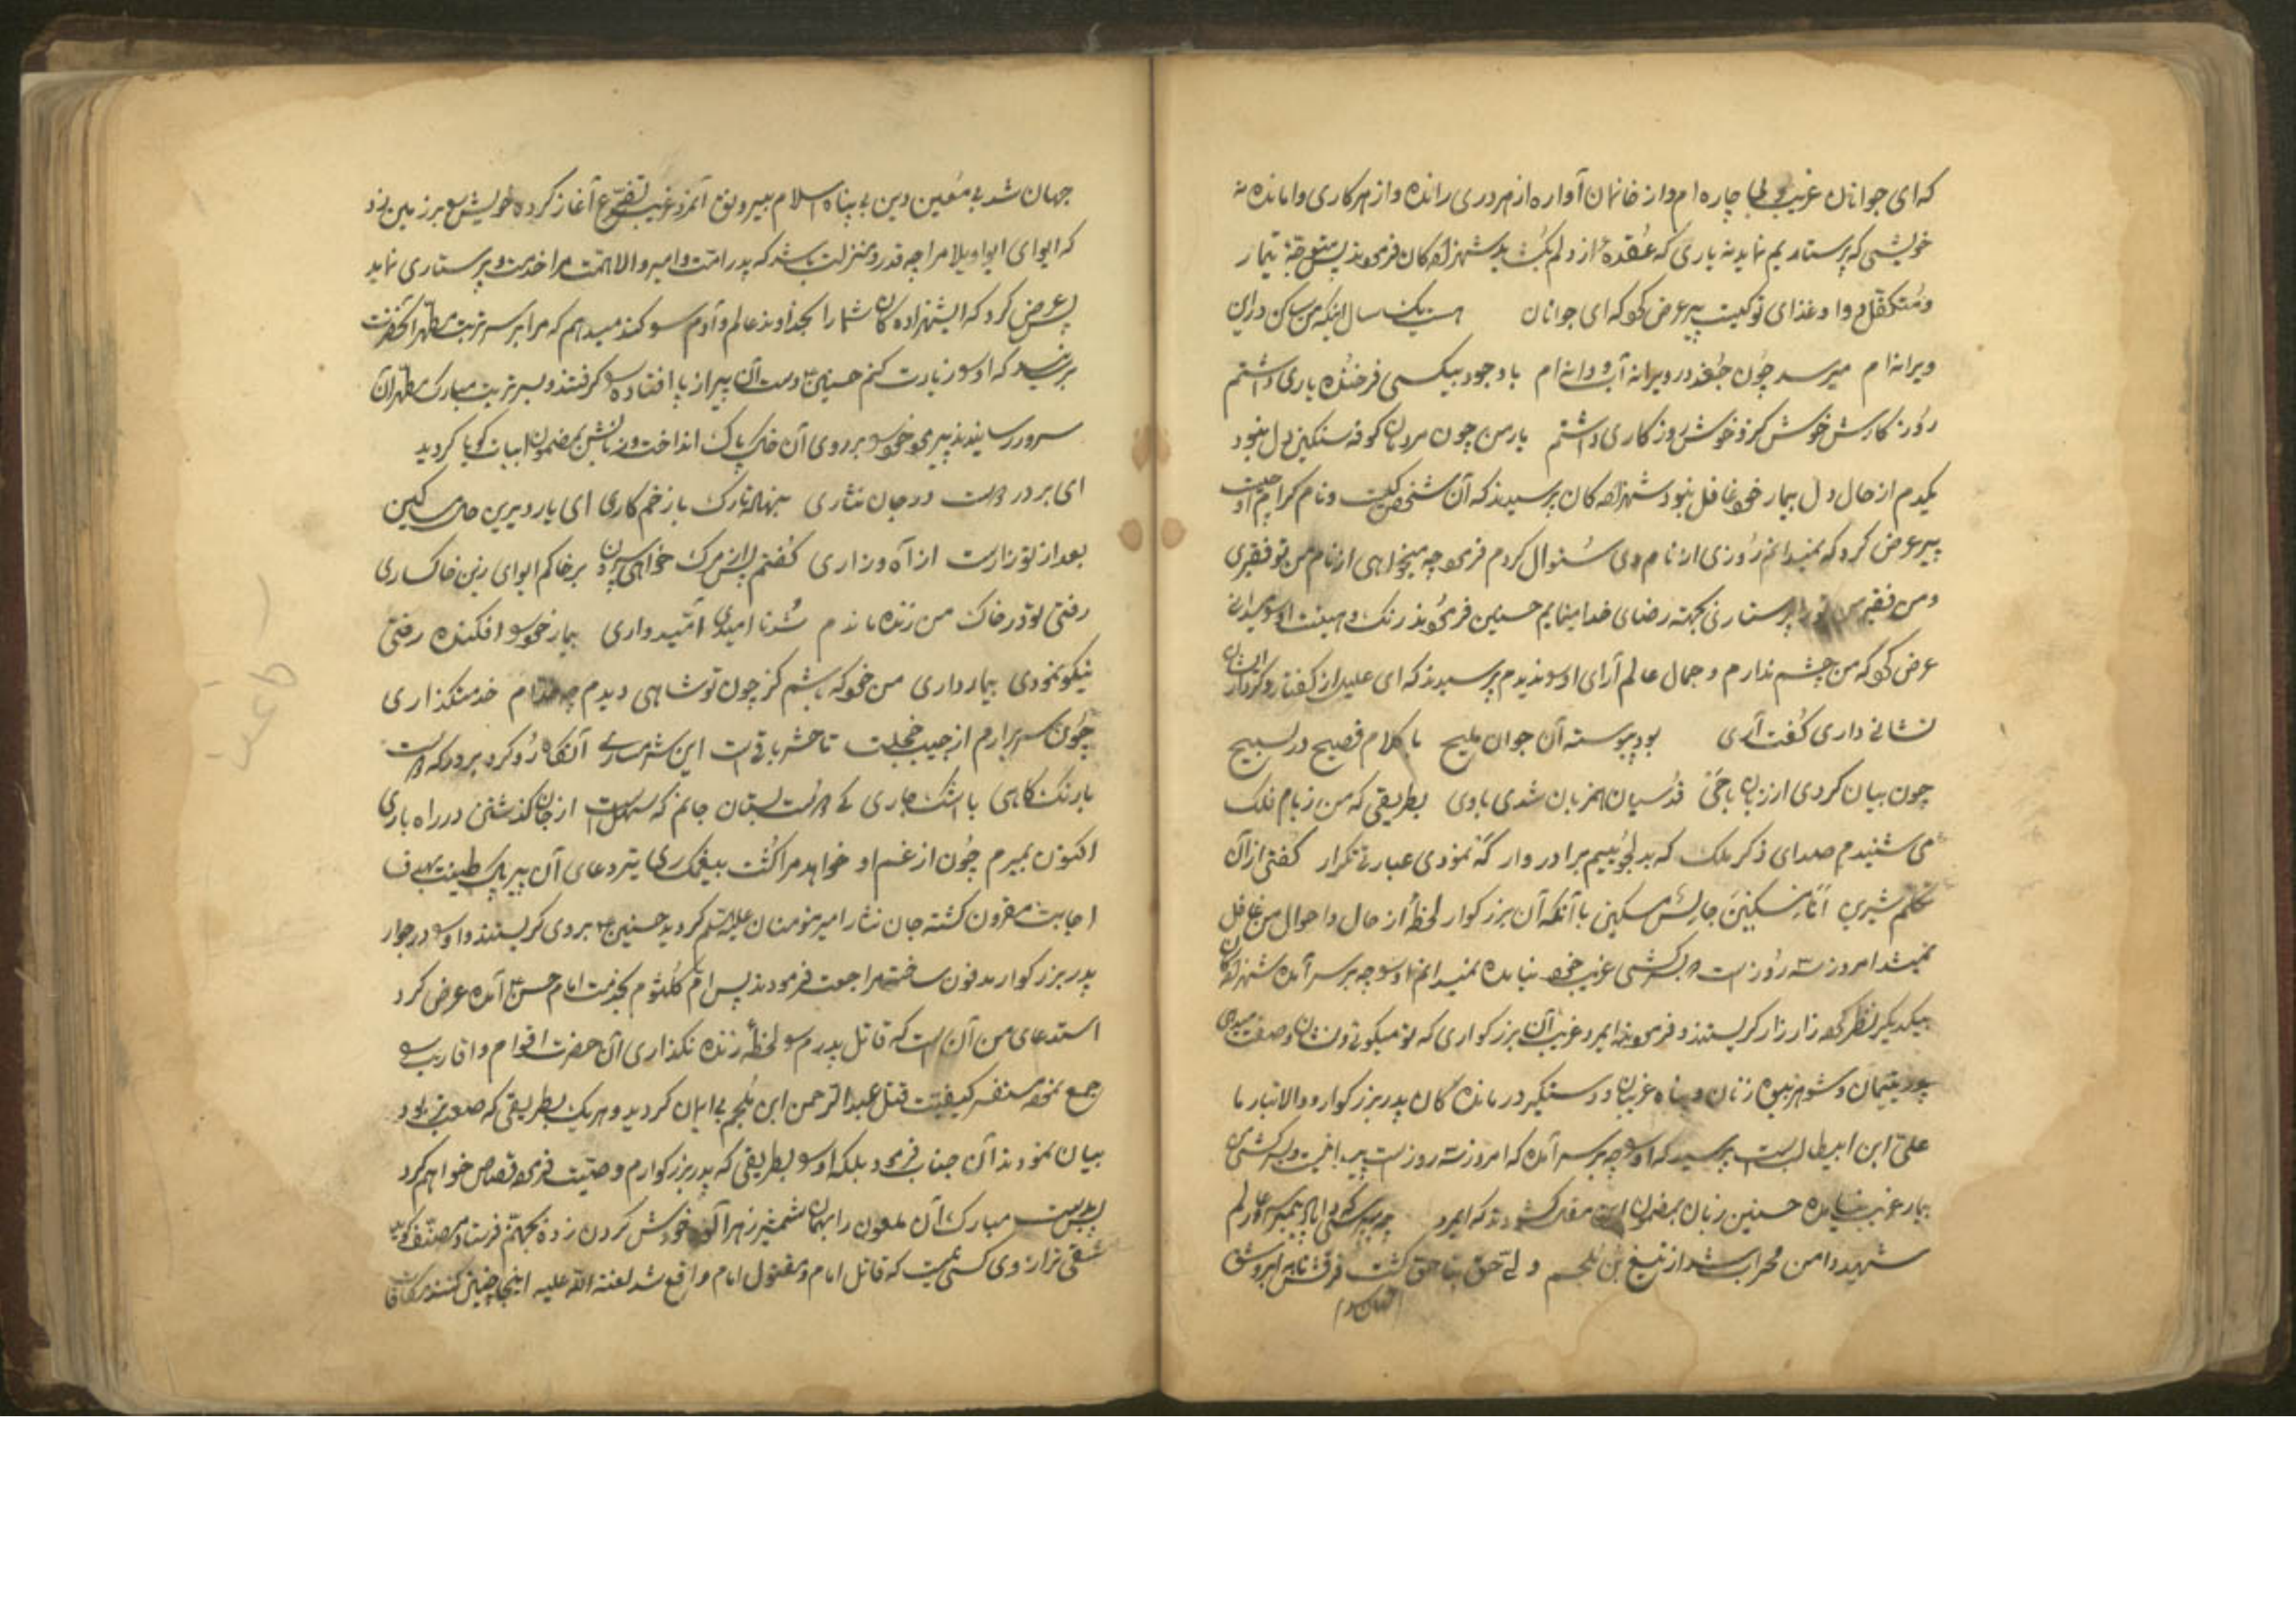 که ای جوانان غریب و بی چاره ام و از خانمان آواره از هر دری رانده و از هر کاری وامانده نه
خویشی که پرستاریم نماید نه یاری که عقده از دلم بگشاید شهزاده کان فرمودند پس متوجه تیمار
و متکفل دوا و غذای تو کیست پیر عرض کرد که ای جوانان هست یک سال اینکه من ساکن در این
ویرانه ام میرسد چون جغد در ویرانه آب و دانه ام با وجود بیکسی فرخنده یاری داشتم
روزگارش خوش کزو خوش روزگاری داشتم یار من چون مردمان کوفه سنکین دل نبود
یکدم از حال دل بیمار خود غافل نبود شهزاده کان پرسیدند که آن شخص کیست و نام کرامی او چیست
پیر عرض کرد که نمیدانم روزی از نام وی سئوال کردم فرمود چه میخواهی از نام من تو فقیری
و من فقیر من تو را پرستاری بجهته رضای خدا مینمایم حسنین فرمودند رنک و هیئت او چه میدانی
عرض کرد که من چشم ندارم و جمال عالم آرای او را ندیدم پرسیدند که ای علیل از کفتار و کردار ایشان
نشانی داری کفت آری بود پیوسته آن جوان ملیح با کلام فصیح در تسبیح
چون بیان کردی از زبان با حی قدسیان همزبان شدی با وی بطریقی که من ز بام فلک
می شنیدم صدای ذکر ملک که بدلجوئیم برادر وار که نمودی عبارتی تکرار کفتی از آن
تکلم شیرین انا مسکین جالس مسکین با آنکه آن بزرکوار لحظه از حال و احوال من غافل
نمیشد امروز سه روز است بسرکشی غریب خود نیامده نمیدانم او را چه بر سر آمده شهزاده کان
بیکدیکر نظر کرده زار زار کریستند و فرمودند ایمرد غریب آن بزرکواری که تو میکوئی و نشان و صفت میدهی
پدر یتیمان و شوهر بیوه زنان و پناه غریبان و دستکیر درمانده کان پدر بزرکوار و والاتبار ما
علی ابن ابیطالب است پرسید که او را چه بر سر آمده که امروز سه روز است بسرکشی
بیمار غریب نیامده حسنین زبان بمضمون این مقال کشودند که ایمرد
شهید دامن محراب شد از تیغ بن ملجم ولی حق بناحق کشت فرقش تا بر ابروشق
جهان شد بی معین دین بی پناه اسلام بیرونق آنمرد غریب تضرع آغاز کرده خویش را بر زمین زد
که ایوای ایوا ویلا مرا چه قدر و منزلت باشد که پدر امت و امیر والاهمت مرا خدمت و پرستاری نماید
پس عرض کرد که ایشهزاده کان شما را بخداوند عالم و آدم سوکند میدهم که مرا بر سر تربت مطهر آنحضرت
برید که او را زیارت کنم حسنین دست آن پیر از پا افتاده را کرفتند و بسر تربت مبارک مطهر آن
سرور رسانیدند پیر خود را بر روی آن خاک پاک انداخت و زبانش بمضمون ابیات کویا کردید
ای بر درت در جان نثاری بنهاده تارک با زخم کاری ای یار دیرین جان مسکین
بعد از تو زارست از آه و زاری کفتم پس از مرک خواهی سپردن بر خاکم ایوای زین خاکساری
رفتی تو در خاک من زنده ماندم شد نا امیدی امیدواری بیمار خود را افکنده رفتی
نیکو نمودی بیمارداری من خود که باشم کز چون تو شاهی دیدم چه مقدار خدمتکذاری
چون سر برارم از جیب خجلت تا حشر باقیست این شرمساری آنکاه رو کرد بر درکه دوست
با رنک کاهی با اشک جاری کی دوست بستان جانم که سهل است از جان کذشتن در راه یاری
اکنون بمیرم چون از غم او خواهد مرا کشت بیغمکساری تیر دعای آن پیر پاک طینت بهدف
اجابت مقرون کشته جان نثار امیر مومنان علیه السلم کردید حسنین بر وی کریستند و او را در جوار
پدر بزرکوار مدفون ساخته مراجعت فرمودند پس ام کلثوم بخدمت امام حسن آمده عرض کرد
استدعای من آن است که قاتل پدرم را لحظه زنده نکذاری آن حضرت اقوام و اقارب را
جمع نموده مستفسر کیفیت قتل عبدالرحمن ابن ملجم بی ایمان کردید و هر یک بطریقی که صعوبتر بود
بیان نمودند آن جناب فرمود بلکه او را بطریقی که پدر بزرکوارم وصیت فرموده قصاص خواهم کرد
پس بدست مبارک آن ملعون را بهمان شمشیر زهرآلوده خودش کردن زده بجهنم فرستاد مصنف کوید
شقی تر از وی کسی نیست که قاتل امام و مقتول امام واقع شد لعنة الله علیه اینجا چنین کنند